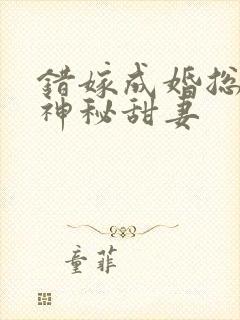 错嫁成婚总
神秘甜妻
童菲